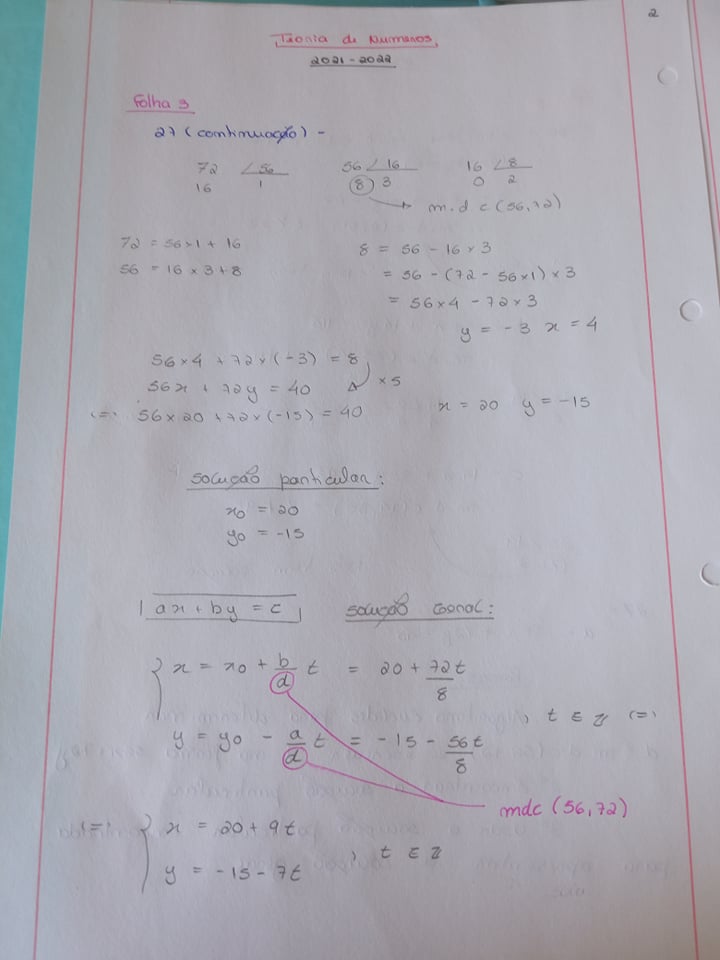 2
Teoria de Numeros
2021-2022
Folha 3
27 (continuação) -
72 56 56 16 16 8
16 1 8 3 0 2
m.d c (56,72)
72 = 56×1 + 16
56 = 16 × 3 + 8
8 = 56 - 16 × 3
= 56 - (72 - 56×1) × 3
= 56×4 - 72×3
y = -3 x = 4
56×4 + 72×(-3) = 8
56x + 72y = 40 ×5
(=) 56×20 + 72×(-15) = 40 x = 20 y = -15
Solução particular:
x0 = 20
y0 = -15
ax + by = c Solução Geral:
x = x0 + b/d t = 20 + 72t/8
, t ∈ Z (=)
y = y0 - a/d t = -15 - 56t/8
mdc (56,72)
(=) x = 20 + 9t
, t ∈ Z
y = -15 - 7t